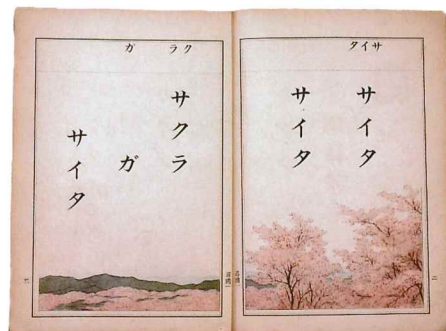 サイタ
サイタ
サイタ
二
クラ ガ
サクラ
ガ
サイタ